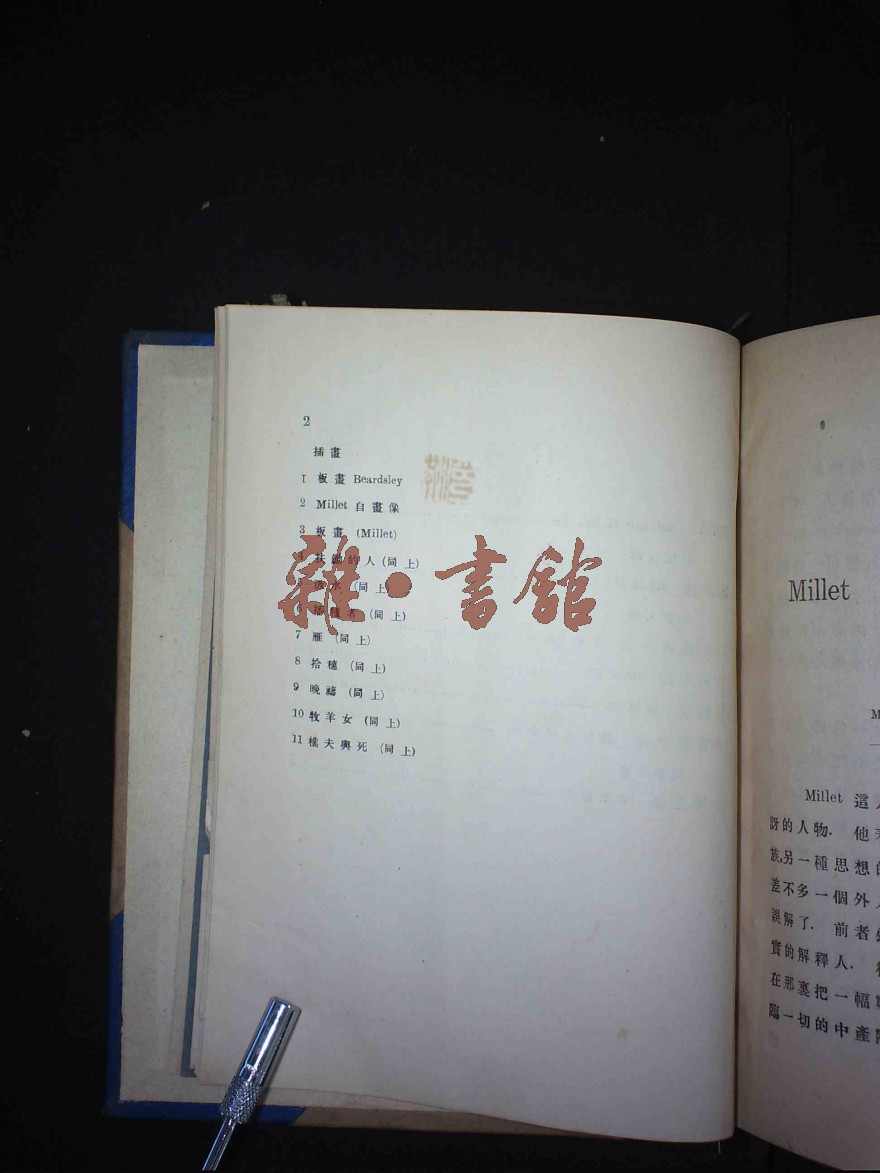 2
插畫
1 板畫 Beardsley
2 Millet 自畫像
3 板畫 (Millet)
4 扶鋤的人 (同上)
水 (同上)
者 (同上)
7 雁 (同上)
8 拾穗 (同上)
9 晚禱 (同上)
10 牧羊女 (同上)
11 樵夫與死 (同上)
雜·書館
Millet
M
Millet 這
訝的人物. 他
族,另一種思想的
差不多一個外
誤解了. 前者
實的解釋人.
在那裏把一幅
臨一切的中產